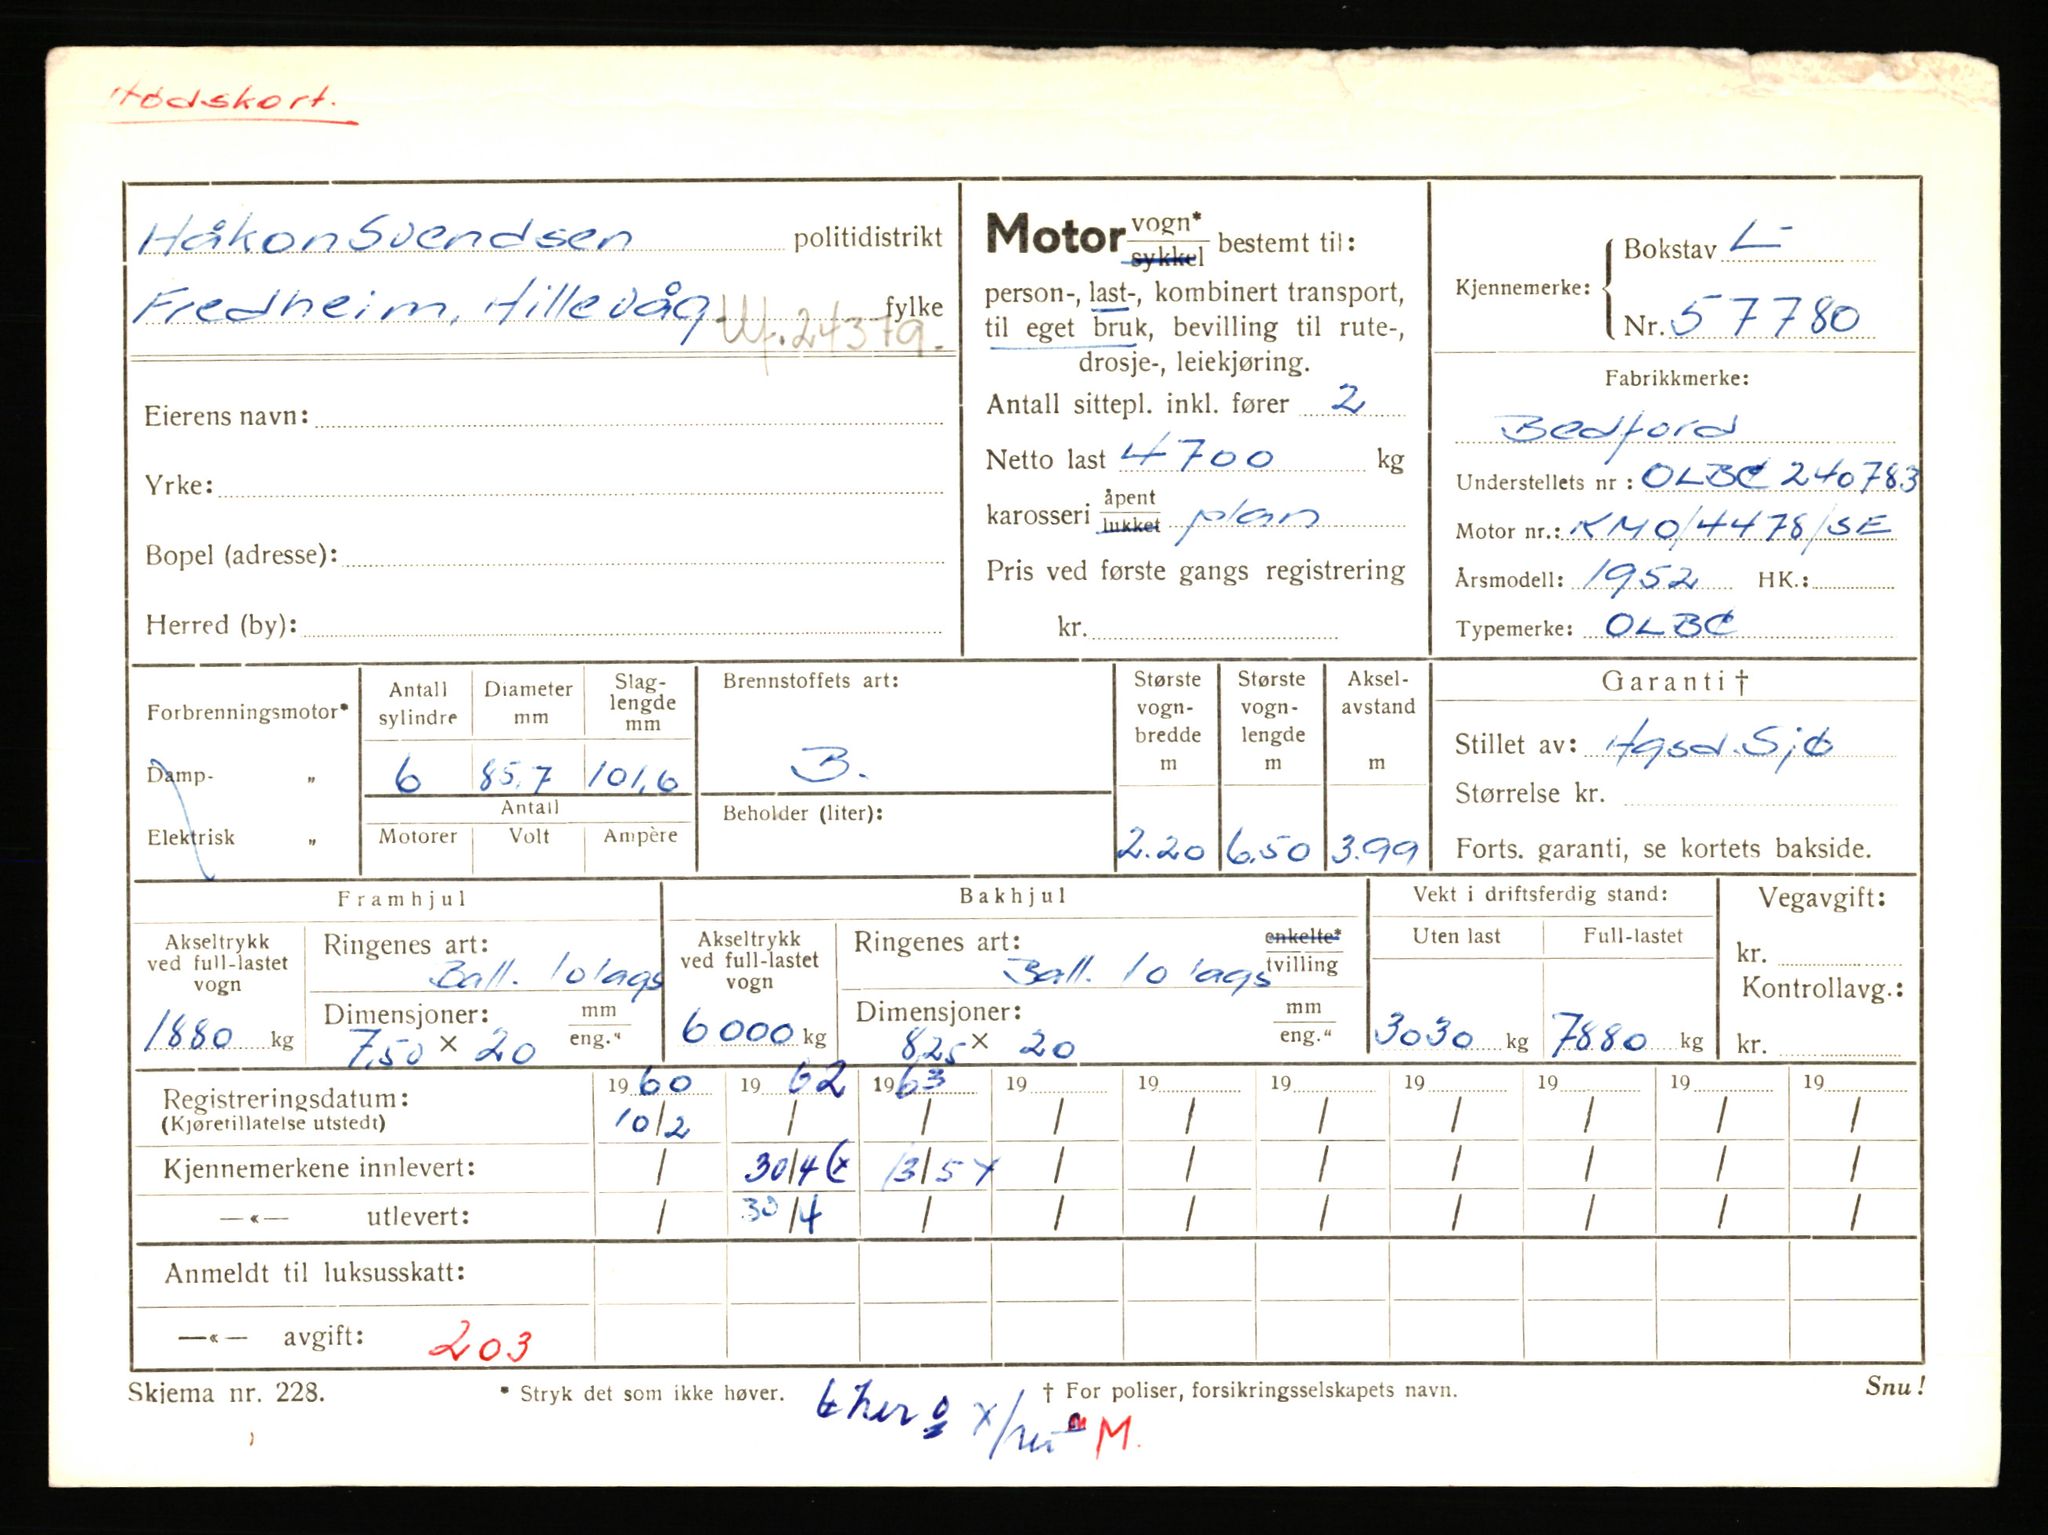 Nødskort.
Håkon Svendsen politidistrikt
Fredheim, Hillevåg fylke
Utf. 24379.
Eierens navn:
Yrke:
Bopel (adresse):
Herred (by):
Motor vogn*/sykkel bestemt til:
person-, last-, kombinert transport,
til eget bruk, bevilling til rute-,
drosje-, leiekjøring.
Antall sittepl. inkl. fører 2
Netto last 4700 kg
karosseri åpent/lukket plan
Pris ved første gangs registrering
kr.
Kjennemerke: Bokstav L
Nr. 57780
Fabrikkmerke:
Bedford
Understellets nr: OLBC 240783
Motor nr.: KMO/4478/SE
Årsmodell: 1952 HK.:
Typemerke: OLBC
Forbrenningsmotor*
Damp- „
Elektrisk „
Antall sylindre 6
Diameter mm 85,7
Slaglengde mm 101,6
Antall
Motorer Volt Ampère
Brennstoffets art:
B.
Beholder (liter):
Største vogn-bredde m 2.20
Største vogn-lengde m 6.50
Aksel-avstand m 3.99
Garanti †
Stillet av: Hgsd. Sjø
Størrelse kr.
Forts. garanti, se kortets bakside.
Framhjul
Akseltrykk ved full-lastet vogn
1880 kg
Ringenes art:
Ball. 10 lags
Dimensjoner: mm/eng."
7,50 × 20
Bakhjul
Akseltrykk ved full-lastet vogn
6000 kg
Ringenes art: enkelte*/tvilling
Ball. 10 lags
Dimensjoner: mm/eng."
825 × 20
Vekt i driftsferdig stand:
Uten last Full-lastet
3030 kg 7880 kg
Vegavgift:
kr.
Kontrollavg.:
kr.
1960 1962 1963 19 19 19 19 19 19 19
Registreringsdatum: 10/2 / / / / / / / / /
(Kjøretillatelse utstedt)
Kjennemerkene innlevert: / 30/4 (x 13/5 x / / / / / / /
—«— utlevert: / 30/4 / / / / / / / /
Anmeldt til luksusskatt:
—«— avgift: 203
Skjema nr. 228. * Stryk det som ikke høver. † For poliser, forsikringsselskapets navn. Snu!
M.